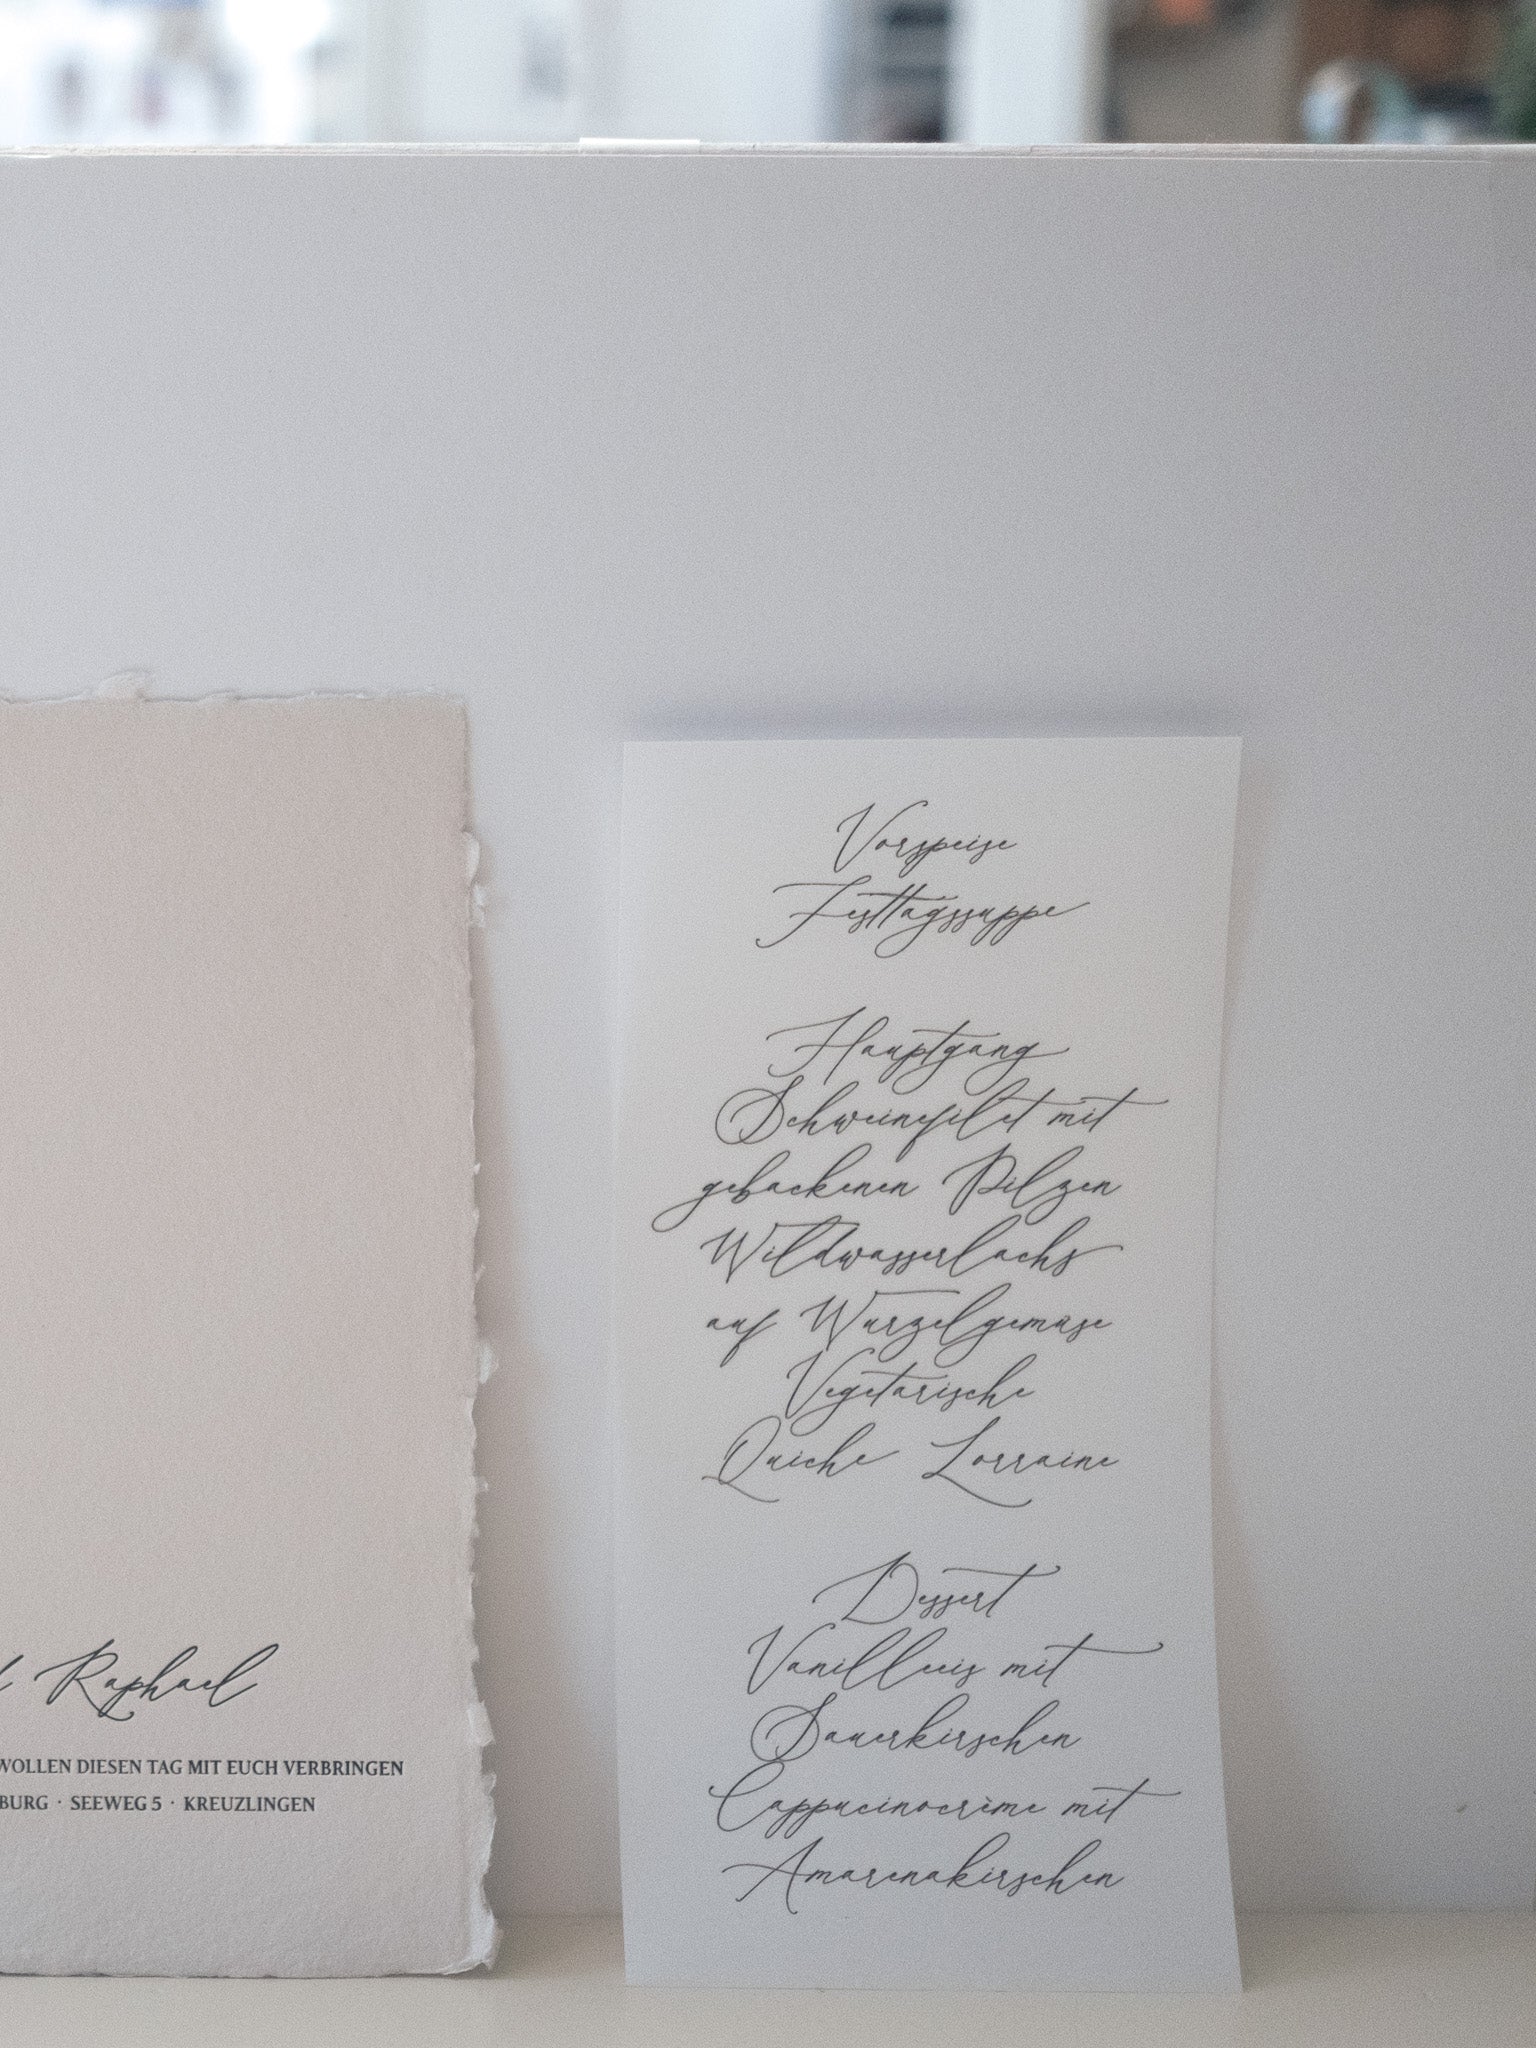 Raphael
WOLLEN DIESEN TAG MIT EUCH VERBRINGEN
BURG · SEEWEG 5 · KREUZLINGEN
Vorspeise
Festtagssuppe
Hauptgang
Schweinefilet mit
gebackenen Pilzen
Wildwasserlachs
auf Wurzelgemüse
Vegetarische
Quiche Lorraine
Dessert
Vanilleeis mit
Sauerkirschen
Cappucinocrème mit
Amarenakirschen